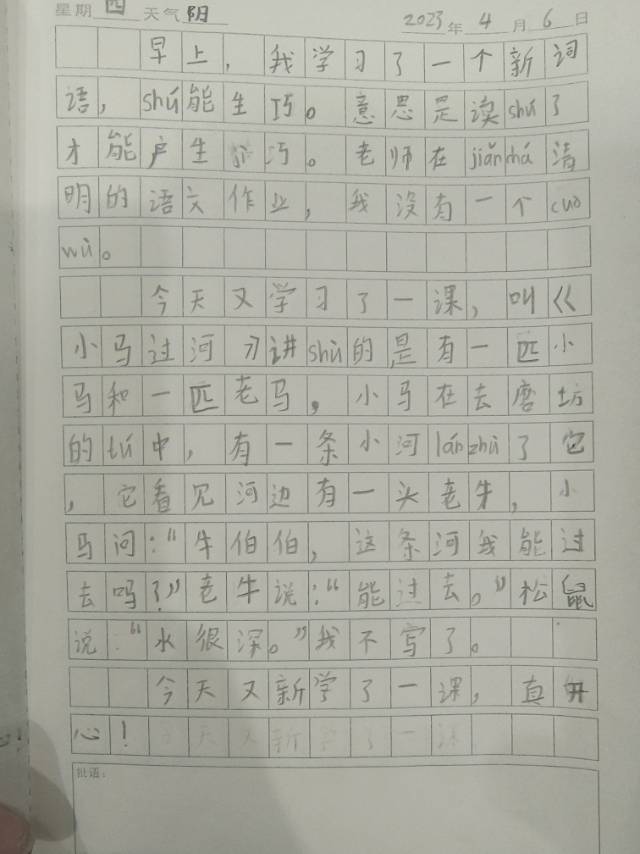 星期四 天气阴 2023年4月6日
早上，我学习了一个新词
语，shú能生巧。意思是读shú了
才能户生巧。老师在jiǎnchá清
明的语文作业，我没有一个cuò
wù。
今天又学习了一课，叫《
小马过河》讲shù的是有一匹小
马和一匹老马，小马在去磨坊
的tú中，有一条小河lánzhù了它
，它看见河边有一头老牛，小
马问：“牛伯伯，这条河我能过
去吗？”老牛说：“能过去。”松鼠
说：“水很深。”我不写了。
今天又新学了一课，真开
心！
批语：